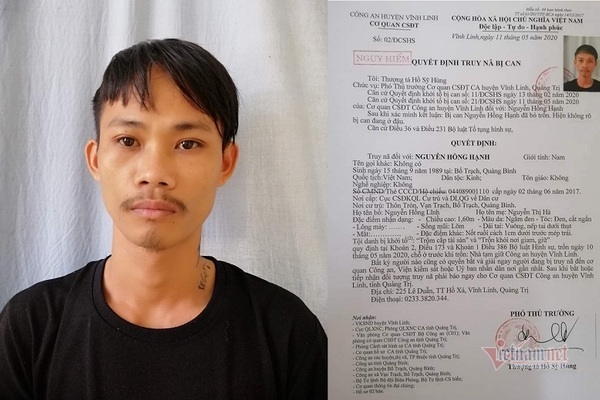 CÔNG AN HUYỆN VĨNH LINH
CƠ QUAN CSĐT
Số: 02/ĐCSHS
CỘNG HÒA XÃ HỘI CHỦ NGHĨA VIỆT NAM
Độc lập - Tự do - Hạnh phúc
Vĩnh Linh, ngày 11 tháng 05 năm 2020
NGUY HIỂM
QUYẾT ĐỊNH TRUY NÃ BỊ CAN
Tôi: Thượng tá Hồ Sỹ Hùng
Chức vụ: Phó Thủ trưởng Cơ quan CSĐT CA huyện Vĩnh Linh, Quảng Trị
Căn cứ Quyết định khởi tố bị can số: 11/ĐCSHS ngày 13 tháng 02 năm 2020
Căn cứ Quyết định khởi tố bị can số: 21/ĐCSHS ngày 11 tháng 05 năm 2020
của: Cơ quan CSĐT Công an huyện Vĩnh Linh đối với: Nguyễn Hồng Hạnh
Sau khi xác minh kết luận: Bị can Nguyễn Hồng Hạnh đã bỏ trốn. Hiện không rõ
bị can đang ở đâu.
Căn cứ Điều 36 và Điều 231 Bộ luật Tố tụng hình sự,
QUYẾT ĐỊNH:
Truy nã đối với: NGUYỄN HỒNG HẠNH Giới tính: Nam
Tên gọi khác: Không có
Sinh ngày 15 tháng 9 năm 1989 tại: Bố Trạch, Quảng Bình
Quốc tịch: Việt Nam; Dân tộc: Kinh; Tôn giáo: Không
Nghề nghiệp: Không
Số CMND/Thẻ CCCD/Hộ chiếu: 044089001110 cấp ngày 02 tháng 06 năm 2017.
Nơi cấp: Cục CSĐKQL Cư trú và DLQG về Dân cư
Nơi cư trú: Thôn Tròn, Vạn Trạch, Bố Trạch, Quảng Bình.
Họ tên bố: Nguyễn Hồng Lĩnh Họ tên mẹ: Nguyễn Thị Hà
Đặc điểm nhận dạng: - Chiều cao: 1,60m - Màu da: Ngăm đen - Tóc: Đen, cắt ngắn
- Lông mày: ...... - Sống mũi: Lõm - Dái tai: Vuông, nếp tai dưới thụt
- Mắt:............. - Đặc điểm khác: Nốt ruồi cách 1cm dưới trước mép trái.
Tội danh bị khởi tố: "Trộm cắp tài sản" và "Trốn khỏi nơi giam, giữ"
quy định tại Khoản 2, Điều 173 và Khoản 1 Điều 386 Bộ luật Hình sự, trốn ngày 10
tháng 05 năm 2020, chỗ ở trước khi trốn: Nhà tạm giữ Công an huyện Vĩnh Linh.
Bất kỳ người nào cũng có quyền bắt và giải ngay người đang bị truy nã đến cơ
quan Công an, Viện kiểm sát hoặc Uỷ ban nhân dân nơi gần nhất. Sau khi bắt hoặc
tiếp nhận đối tượng truy nã phải báo ngay cho Cơ quan CSĐT Công an huyện Vĩnh
Linh, tỉnh Quảng Trị.
Địa chỉ: 225 Lê Duẩn, TT Hồ Xá, Vĩnh Linh, Quảng Trị
Điện thoại: 0233.3820.344.
Nơi nhận:
- VKSND huyện Vĩnh Linh;
PHÓ THỦ TRƯỞNG
Vietnamnet
Thượng tá Hồ Sỹ Hùng
- Hồ sơ 02 bản.